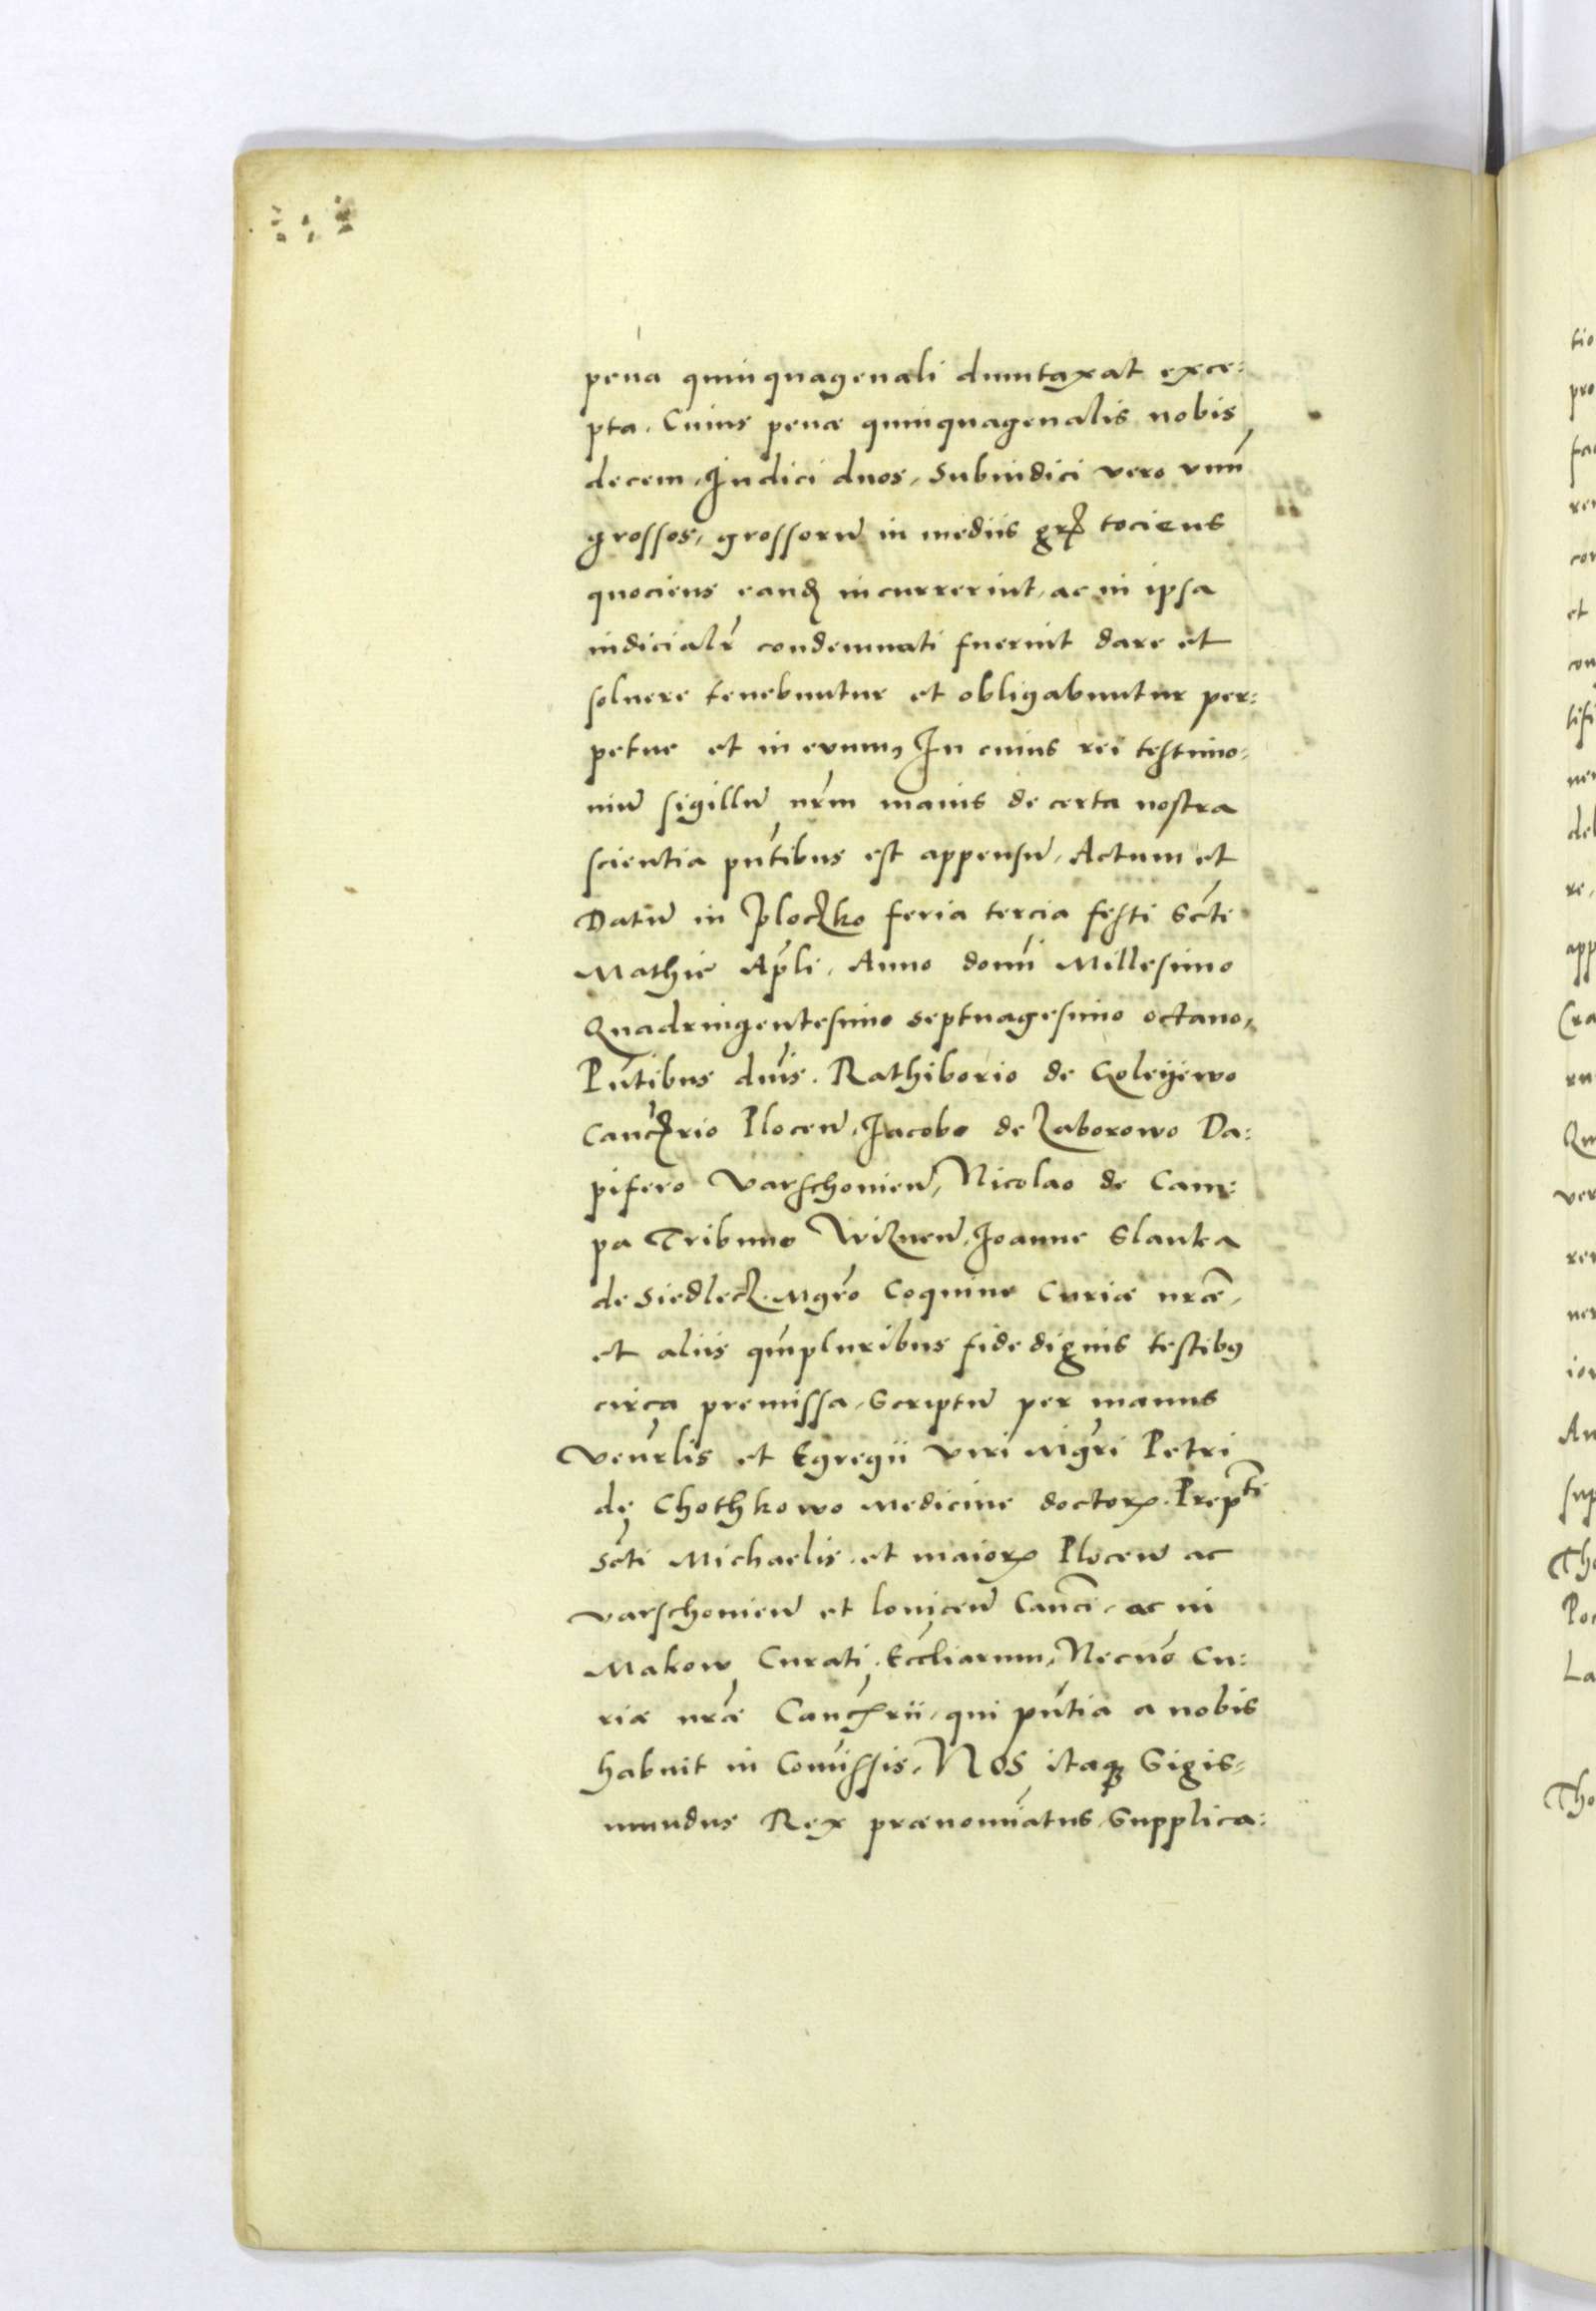 pena quinquagenali dumtaxat exce:
pta. Cuius penæ quinquagenalis nobis
decem, Judici duos, Subiudici vero vnũ
grossos, grossorũ in mediis grꝭ tociens
quociens eandꝫ incurrerint, ac in ipsa
iudicialr̃ condemnati fuerint dare et
soluere tenebuntur et obligabuntur per:
petue et in euum, In cuius rei testimo:
niũ sigillũ nr̃m maius de certa nostra
scientia pn̄tibus est appensũ, Actum et
Datũ in Ploczko feria tercia festi Scti
Mathie Apl̃i, Anno domĩ Millesimo
Quadringentesimo septuagesimo octauo,
Pn̄tibus dn̄is. Rathiborio de Goleyewo
Canczrio Plocen̄, Jacobo de Zaborowo Da:
pifero Varschouien̄, Nicolao de Cam:
pa Tribuno Wiznen̄, Joanne Slanka
de Siedlecz. Mgr̃o Coquine Curiæ nr̃æ,
et aliis qm̄pluribus fidedignis testibꝰ
circa premissa, Scriptũ per manus
Venr̃lis et Egregii viri Mgr̃i Petri
de Chothkowo Medicine doctorꝭ. Prepti
Scti Michaelis. et maiorꝭ Plocen̄ ac
varschouien̄ et louicen̄ Canci, ac in
Makow Curati, Eccl̃iarum, Necnõ Cu:
riæ nr̃æ Canczrii, qui pn̄tia a nobis
habuit in Com̄issis, NOS itaqꝫ Sigis=
mundus Rex prænomĩatus Supplica:
tio
pro
et
del
re,
app
Cra
ver
An
sup
Poc
La
Tho